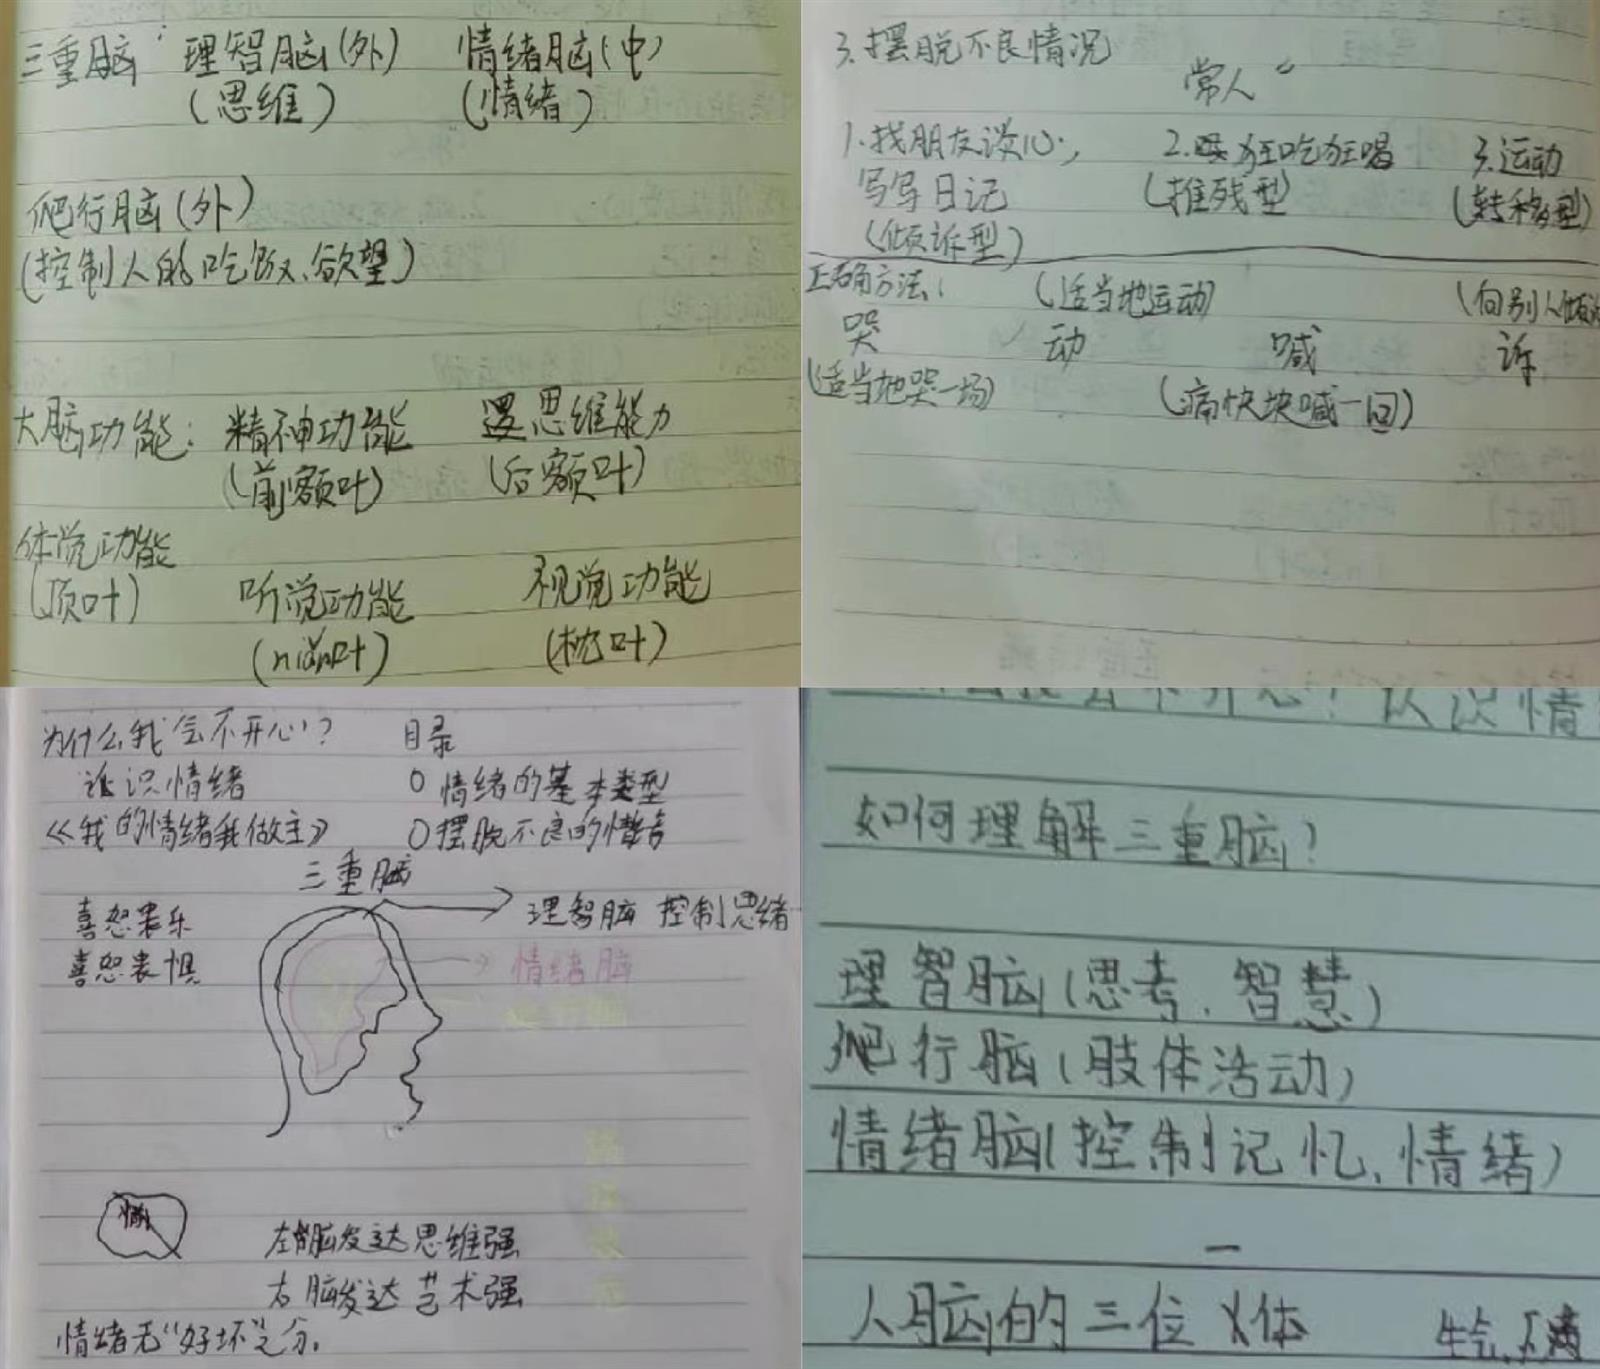 三重脑: 理智脑(外) 情绪脑(中)
(思维) (情绪)
爬行脑(外)
(控制人的吃饭、欲望)
大脑功能: 精神功能 思维能力
(前额叶) (后额叶)
体觉功能
(顶叶) 听觉功能 视觉功能
(niàn叶) (枕叶)
3.摆脱不良情况
常人
1.找朋友谈心, 2.狂吃狂喝 3.运动
写写日记 (摧残型) (转移型)
(倾诉型)
正确方法: (适当地运动) (向别人倾
哭 动 喊 诉
(适当地哭一场) (痛快块喊一回)
为什么我会不开心? 目录
认识情绪 ○情绪的基本类型
《我的情绪我做主》 ○摆脱不良的情
三重脑
喜怒哀乐 理智脑 控制思绪
喜怒哀惧 情绪脑
左脑发达思维强
右脑发达艺术强
情绪无“好坏”之分。
认识情
如何理解三重脑?
理智脑(思考、智慧)
爬行脑(肢体活动)
情绪脑(控制记忆、情绪)
一
人脑的三位体 生气、不满